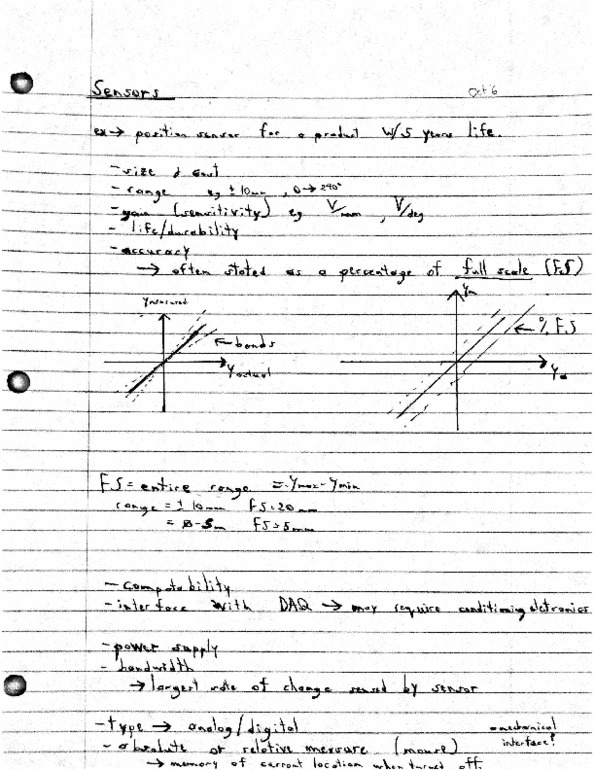 Sensors
Oct 6
ex → position sensor for a product w/ 5 years life
- size & cost
- range eg ± 10mm , 0 → 240°
- gain (sensitivity) eg V/mm , V/deg
- life/durability
- accuracy
→ often stated as a percentage of full scale (F.S)
Ymeasured
← bands
Yactual
Ym
← % F.S
Ya
F.S = entire range = Ymax - Ymin
range = ± 10mm FS = 20mm
= 0-5m FS = 5mm
- compatability
- interface with DAQ → may require conditioning eletronics
- power supply
- bandwidth
→ largest rate of change sensed by sensor
- type → analog/digital
- absolute or relative mersure (mouse)
- mechanical
interface?
→ memory of current location when turned off.